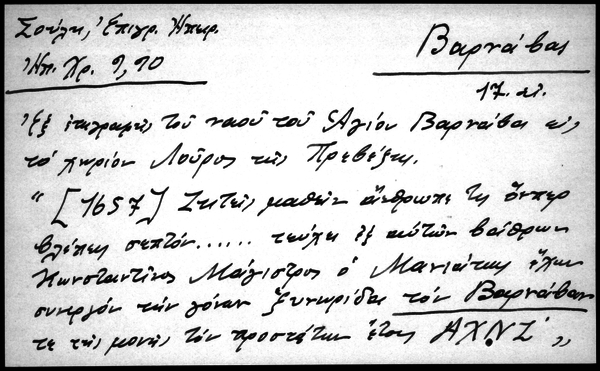 Σούλη, Ἐπιγρ. Ἠπειρ.
Ἠπ. Χρ. 9, 90
Βαρνάβας
17. αἰ.
Ἐξ ἐπιγραφῆς τοῦ ναοῦ τοῦ Ἁγίου Βαρνάβα εἰς
τό χωρίον Λοῦρος τῆς Πρεβέζης.
“ [1657] Ζητεῖς μαθεῖν ἄνθρωπε τίς ὅνπερ
βλέπεις σεπτόν...... τεύχει ἐξ αὐτῶν βάθρων
Κωνσταντῖνος Μάγιστρος ὁ Μανιάτης ἔχων
συνεργόν τήν γόναν ξυνωρίδα τόν Βαρνάβαν
τε τῆς μονῆς τόν προστάτην ἔτους ΑΧΝΖ΄ „